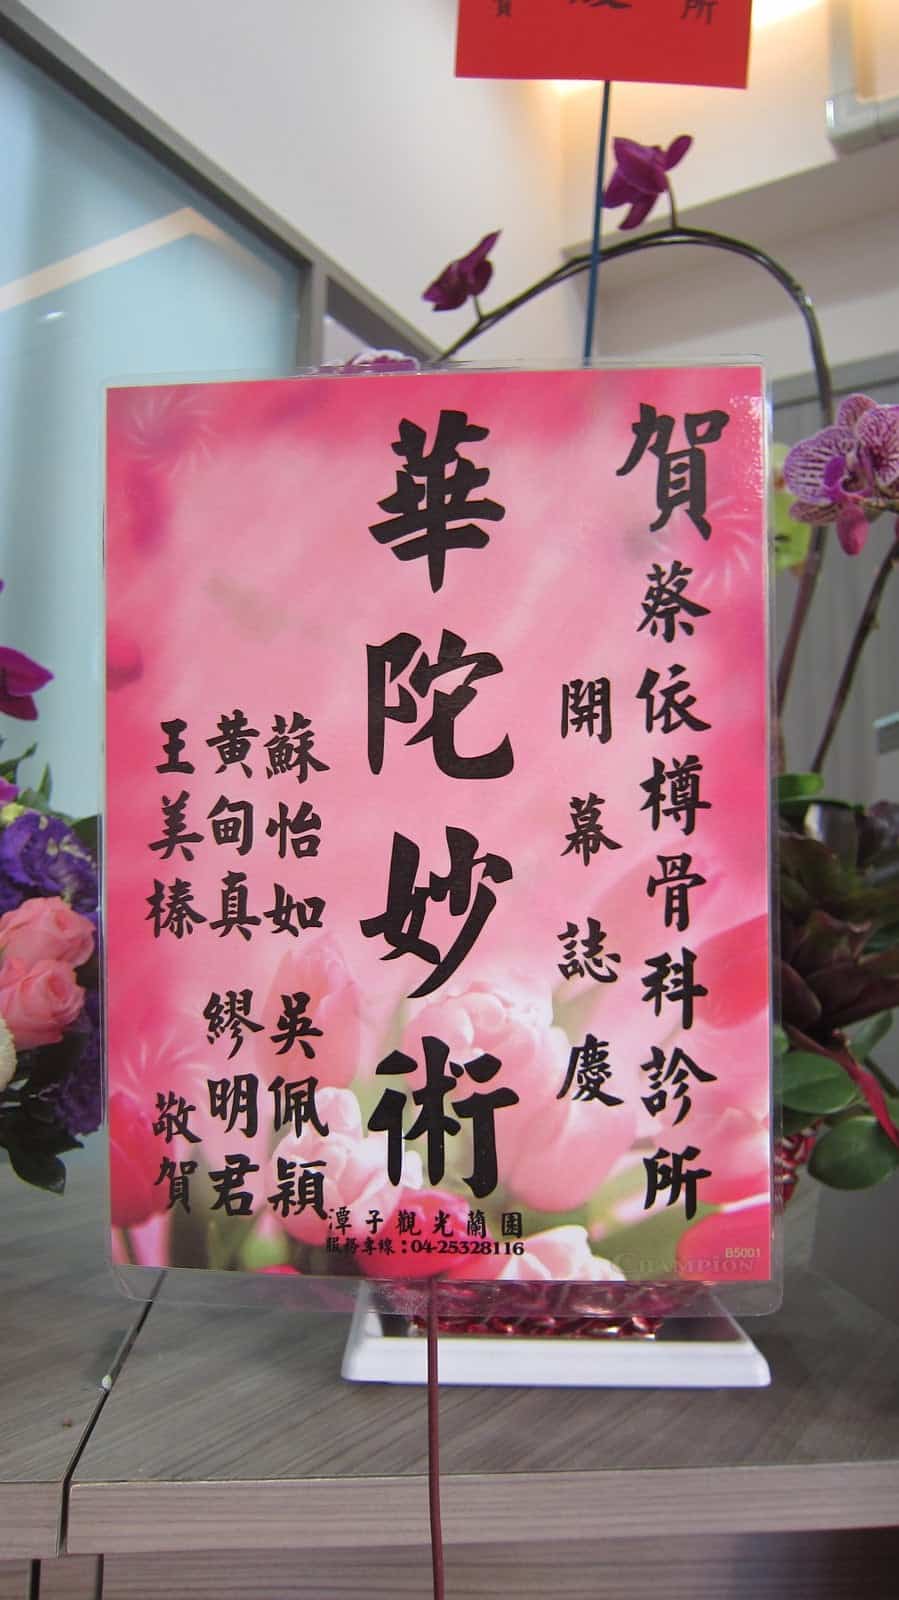 賀蔡依樽骨科診所
開幕誌慶
華陀妙術
蘇怡如 吳佩穎
黃甸真 繆明君
王美榛 敬賀
潭子觀光蘭園
服務專線：04-25328116
B5001
CHAMPION
賀
所